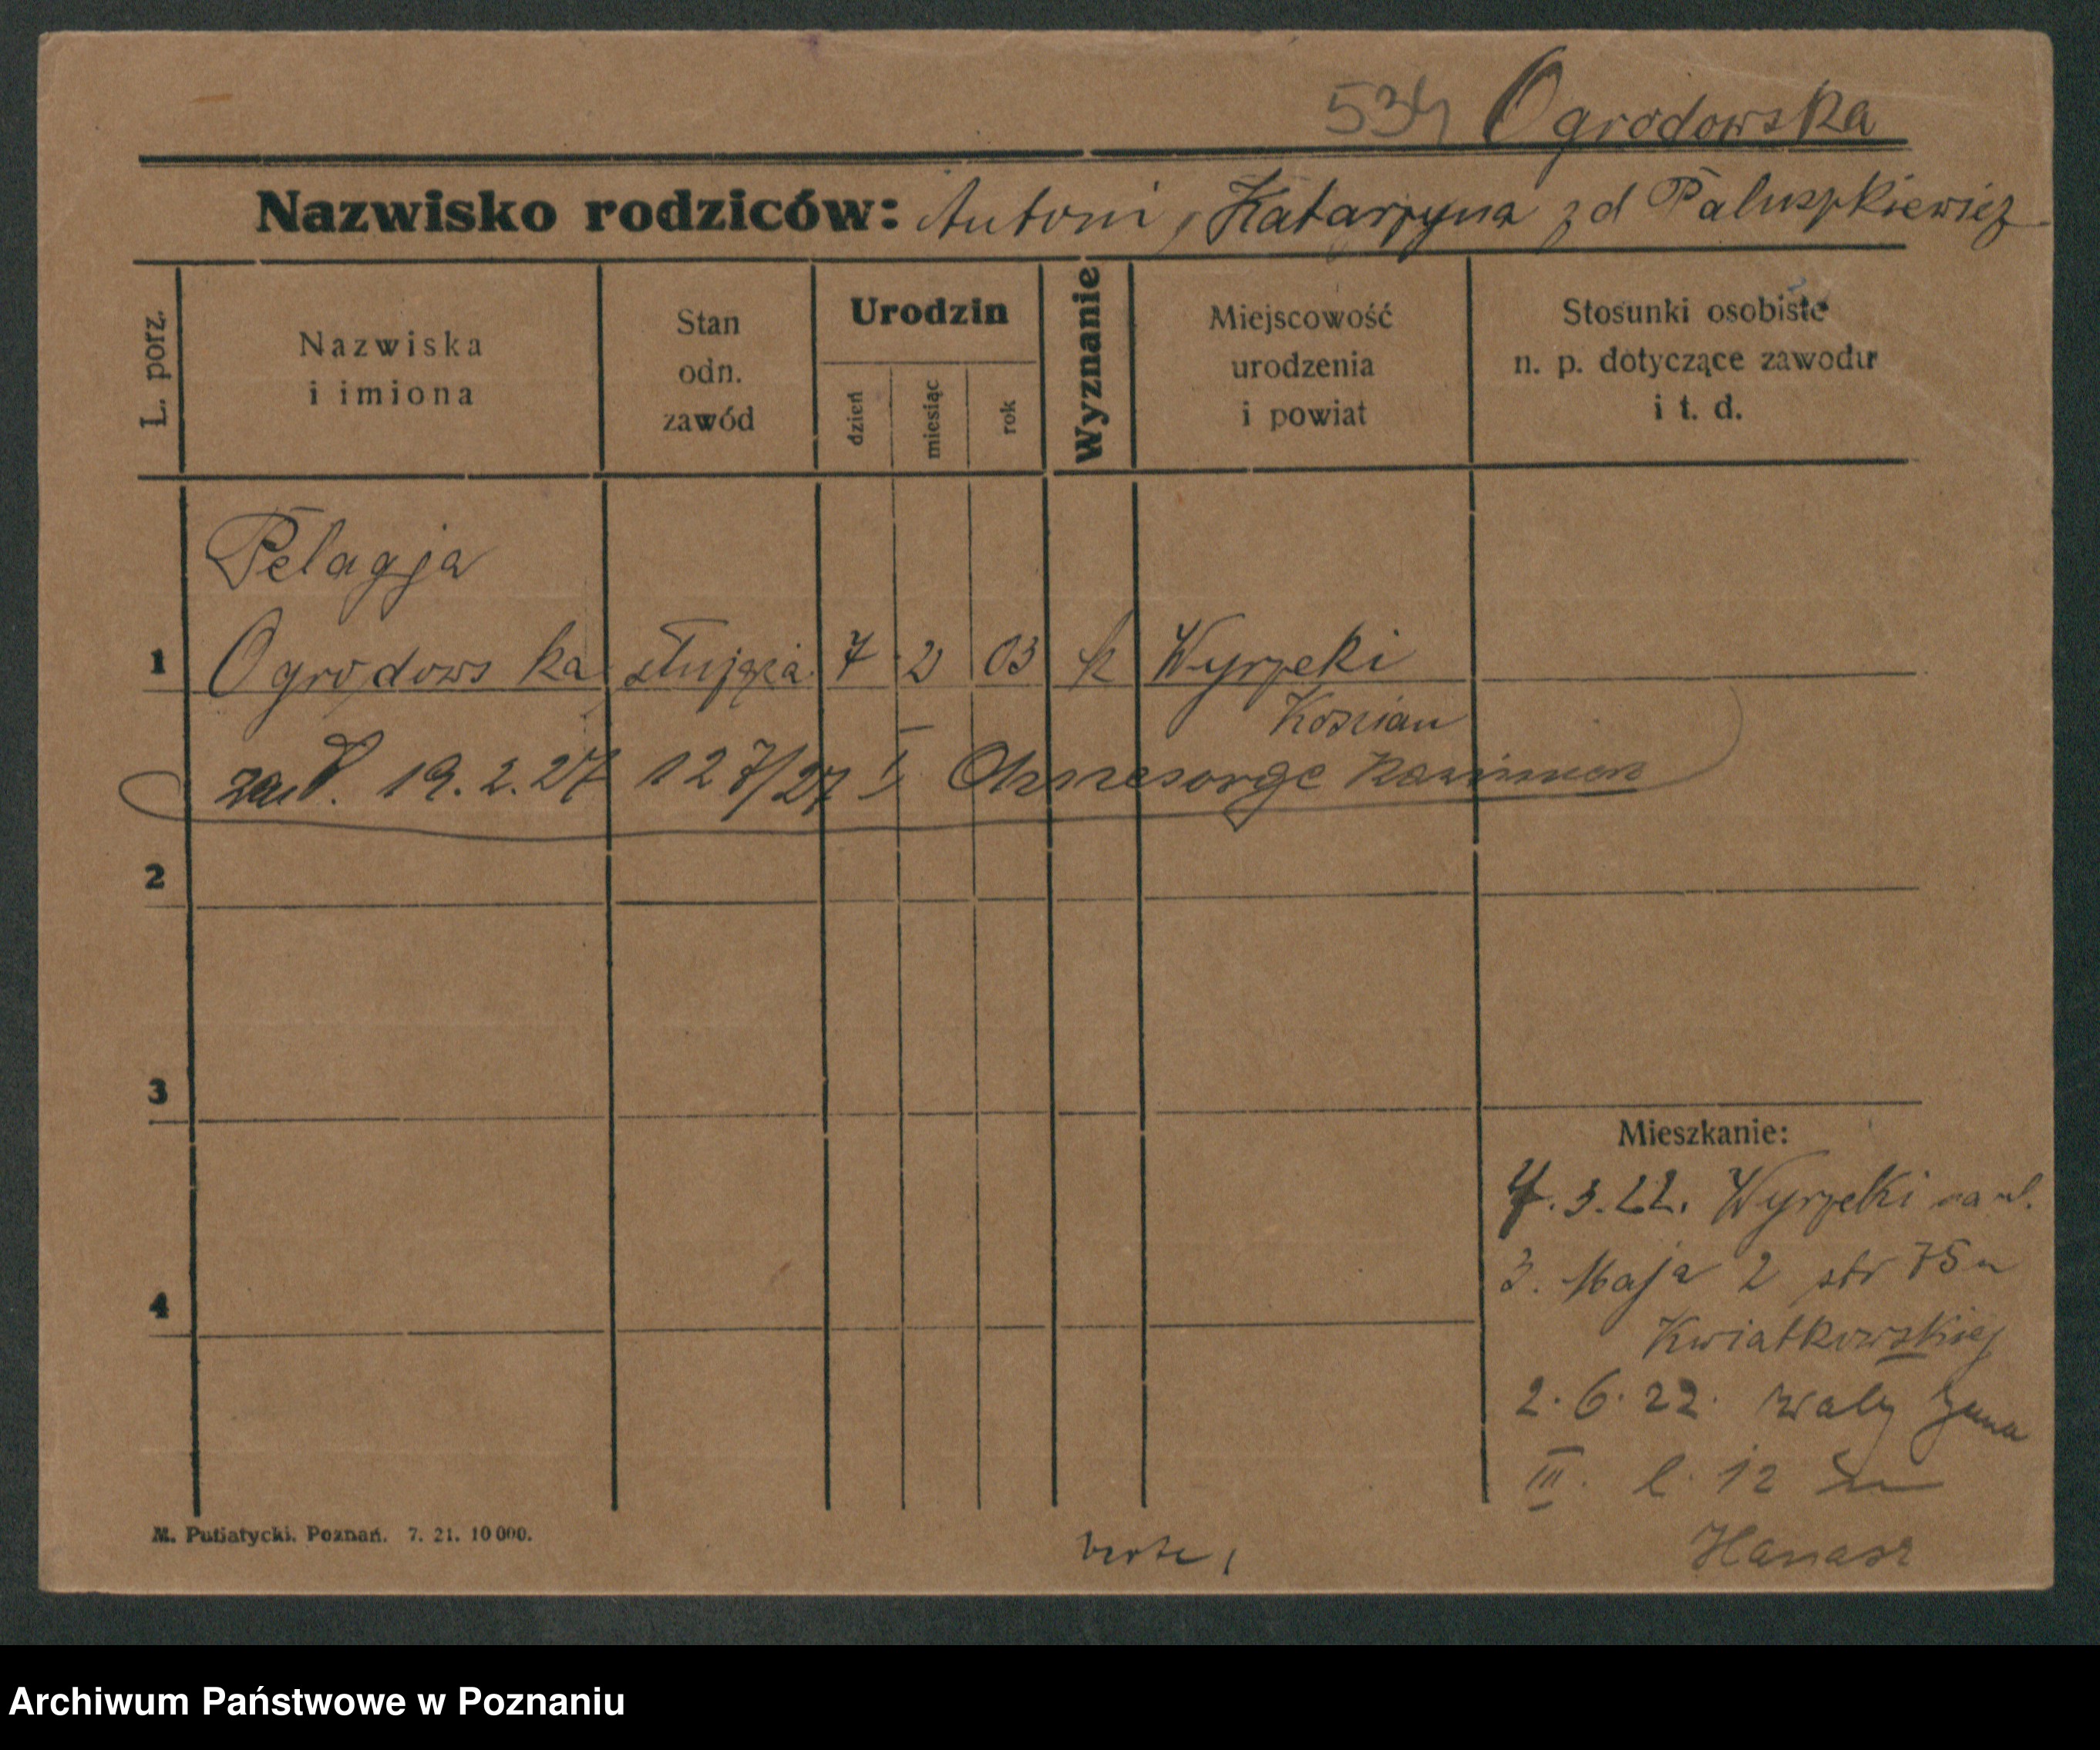 534 Ogrodowska
Nazwisko rodziców: Antoni, Katarzyna zd Paluszkiewicz
L. porz.
Nazwiska
i imiona
Stan
odn.
zawód
Urodzin
dzień
miesiąc
rok
Wyznanie
Miejscowość
urodzenia
i powiat
Stosunki osobiste
n. p. dotyczące zawodu
i t. d.
Pelagja
1 Ogrodowska służąca 7 2 03 k Wyrzeki
Kościan
19.2.27 127/27 I Ohnesorge Kazimierz
2
3
Mieszkanie:
7.3.22. Wyrzeki na ul.
3. Maja 2 str 75 u
4
Kwiatkowskiej
2.6.22. Wały Jana
III. l. 12
Hanasz
verte,
M. Putiatycki. Poznań. 7. 21. 10 000.
Archiwum Państwowe w Poznaniu